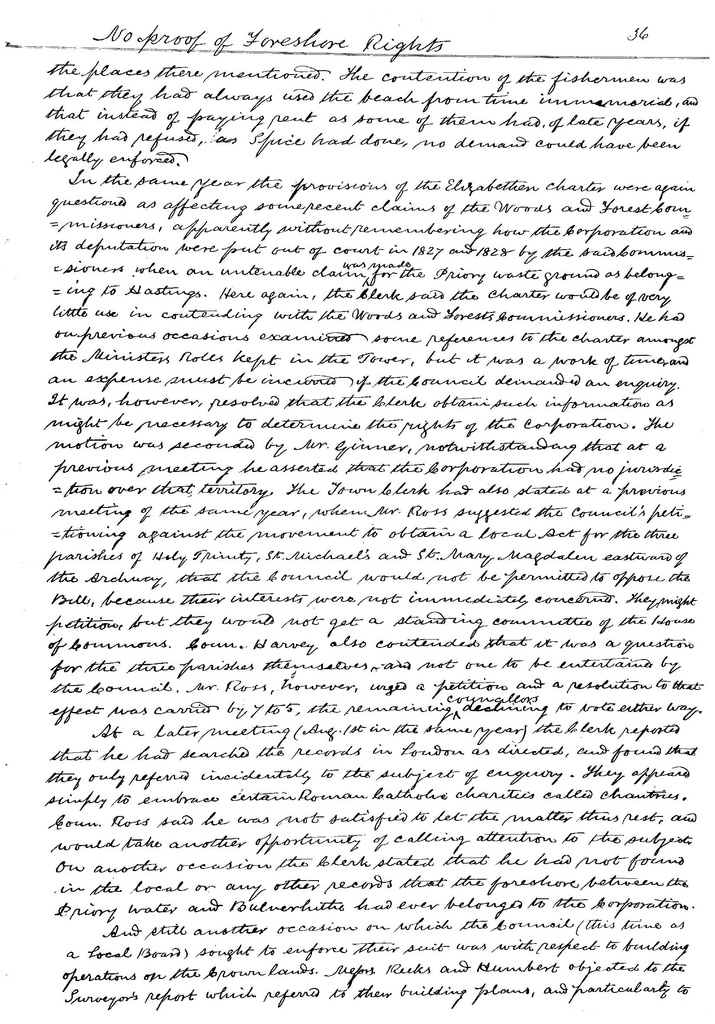 No proof of Foreshore Rights
36
the places there mentioned. The contention of the fishermen was
that they had always used the beach from time immemorial, and
that instead of paying rent as some of them had, of late years, if
they had refused, as Spice had done, no demand could have been
legally enforced.
In the same year the provisions of the Elizabethen charter were again
questiond as affecting some recent claims of the Woods and Forest Com-
=missioners, apparently without remembering how the Corporation and
its deputation were put out of court in 1827 and 1828 by the said Commis-
=sioners when an untenable claim was made for the Priory waste ground as belong=
=ing to Hastings. Here again, the Clerk said the Charter would be of very
little use in contending with the Woods and Forests Commissioners. He had
on previous occasions examined some references to the charter amongst
the Ministers Rolls kept in the Tower, but it was a work of time, and
an expense must be incurred if the Council demanded an enquiry.
It was, however, resolved that the Clerk obtain such information as
might be necessary to determine the rights of the Corporation. The
motion was seconded by Mr. Ginner, notwithstanding that at a
previous meeting he asserted that the Corporation had no jurisdic
=tion over that territory. The Town Clerk had also stated at a previous
meeting of the same year, when Mr. Ross suggested the Council's peti-
=tioning against the movement to obtain a local Act for the three
parishes of Holy Trinity, St. Michael's and St. Mary Magdalen eastward of
the Archway, that the Council would not be permitted to oppose the
Bill, because their interests were not immediately concerned. They might
petition, but they would not get a standing committee of the House
of Commons. Coun. Harvey also contended that it was a question
for the three parishes themselves, and not one to be entertained by
the Council. Mr. Ross, however, urged a petition and a resolution to that
effect was carried by 7 to 5, the remaining councillors declining to vote either way.
At a later meeting (Aug. 1st in the same year) the Clerk reported
that he had searched the records in London as directed, and found that
they only referred incidentally to the subject of enquiry. They appeard
simply to embrace certain Roman Catholic charities called chantries.
Coun. Ross said he was not satisfied to let the matter thus rest, and
would take another opportunity of calling attention to the subject.
On another occasion the Clerk stated that he had not found
in the local or any other records that the foreshore between the
Priory water and Bulverhithe had ever belonged to the Corporation.
And still another occasion on which the Council (this time as
a Local Board) sought to enforce their suit was with respect to building
operations on the Crown lands. Messrs Reeks and Humbert objected to the
Surveyor's report which referred to their building plans, and particularly to